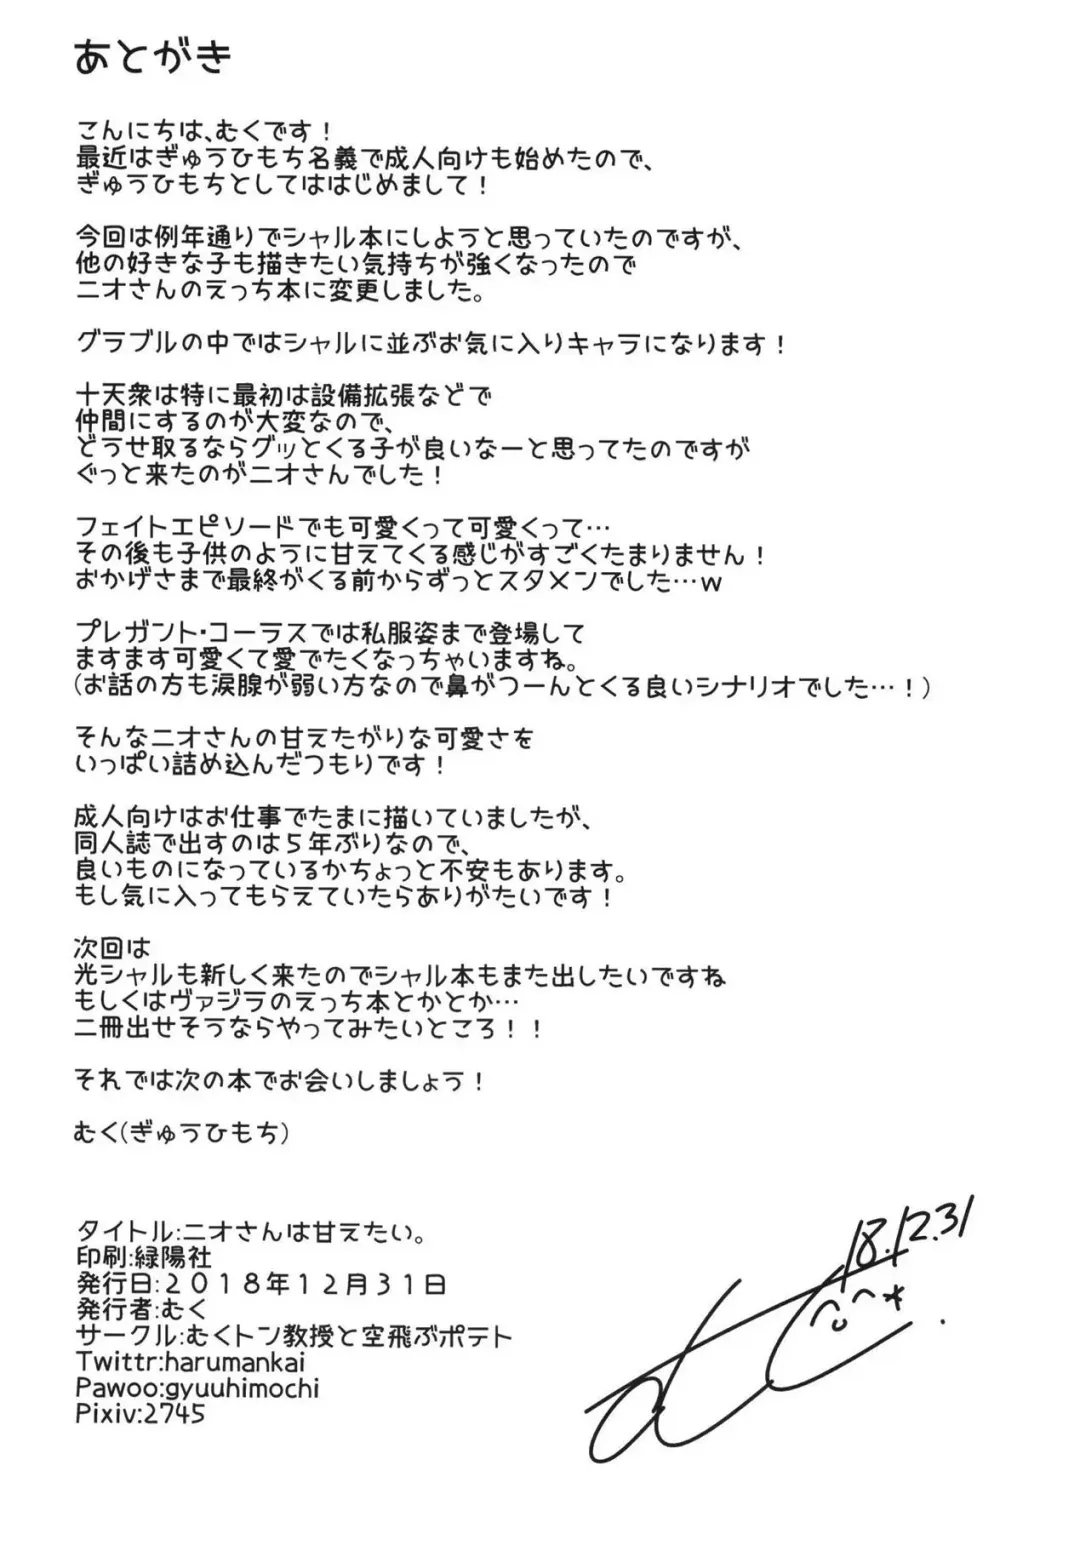 あとがき
こんにちは､むくです！
最近はぎゅうひもち名義で成人向けも始めたので､
ぎゅうひもちとしてははじめまして！
今回は例年通りでシャル本にしようと思っていたのですが､
他の好きな子も描きたい気持ちが強くなったので
ニオさんのえっち本に変更しました。
グラブルの中ではシャルに並ぶお気に入りキャラになります！
十天衆は特に最初は設備拡張などで
仲間にするのが大変なので､
どうせ取るならグッとくる子が良いなーと思ってたのですが
ぐっと来たのがニオさんでした！
フェイトエピソードでも可愛くって可愛くって…
その後も子供のように甘えてくる感じがすごくたまりません！
おかげさまで最終がくる前からずっとスタメンでした…w
プレガント・コーラスでは私服姿まで登場して
ますます可愛くて愛でたくなっちゃいますね。
(お話の方も涙腺が弱い方なので鼻がつーんとくる良いシナリオでした…！)
そんなニオさんの甘えたがりな可愛さを
いっぱい詰め込んだつもりです！
成人向けはお仕事でたまに描いていましたが､
同人誌で出すのは５年ぶりなので､
良いものになっているかちょっと不安もあります。
もし気に入ってもらえていたらありがたいです！
次回は
光シャルも新しく来たのでシャル本もまた出したいですね
もしくはヴァジラのえっち本とかとか…
二冊出せそうならやってみたいところ！！
それでは次の本でお会いしましょう！
むく(ぎゅうひもち)
タイトル:ニオさんは甘えたい。
印刷:緑陽社
発行日:２０１８年１２月３１日
発行者:むく
サークル:むくトン教授と空飛ぶポテト
Twittr:harumankai
Pawoo:gyuuhimochi
Pixiv:2745
18.12.31